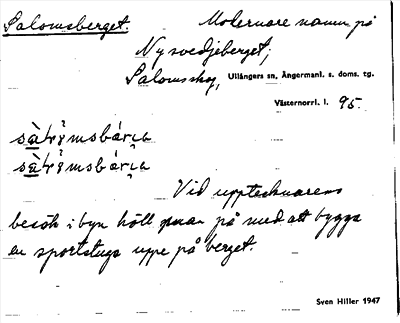 Salomsberget. Modernare namn på
Nysvedjeberget;
Salomsskog, Ullångers sn, Ångermanl. s. doms. tg.
Västernorrl. l. 95.
Vid upptecknarens
besök i byn höll man på med att bygga
en sportstuga uppe på berget.
Sven Hiller 1947